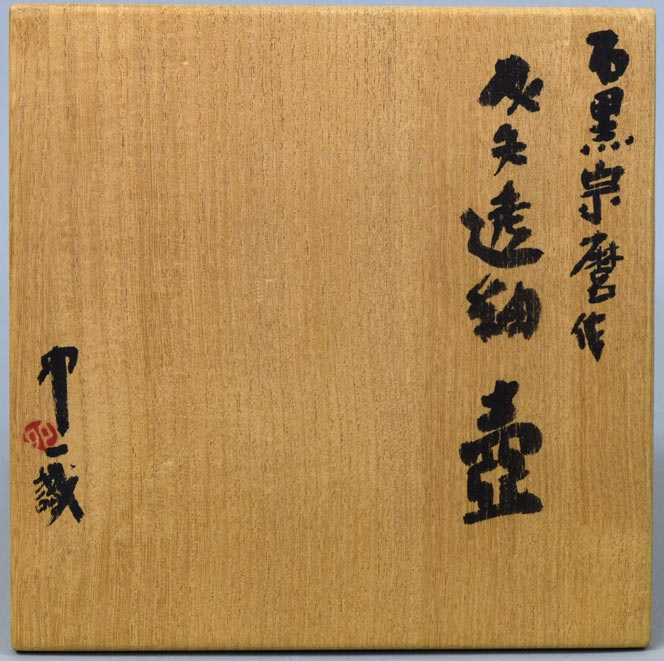 石黒宗麿作
灰失透釉 壺
卯一識